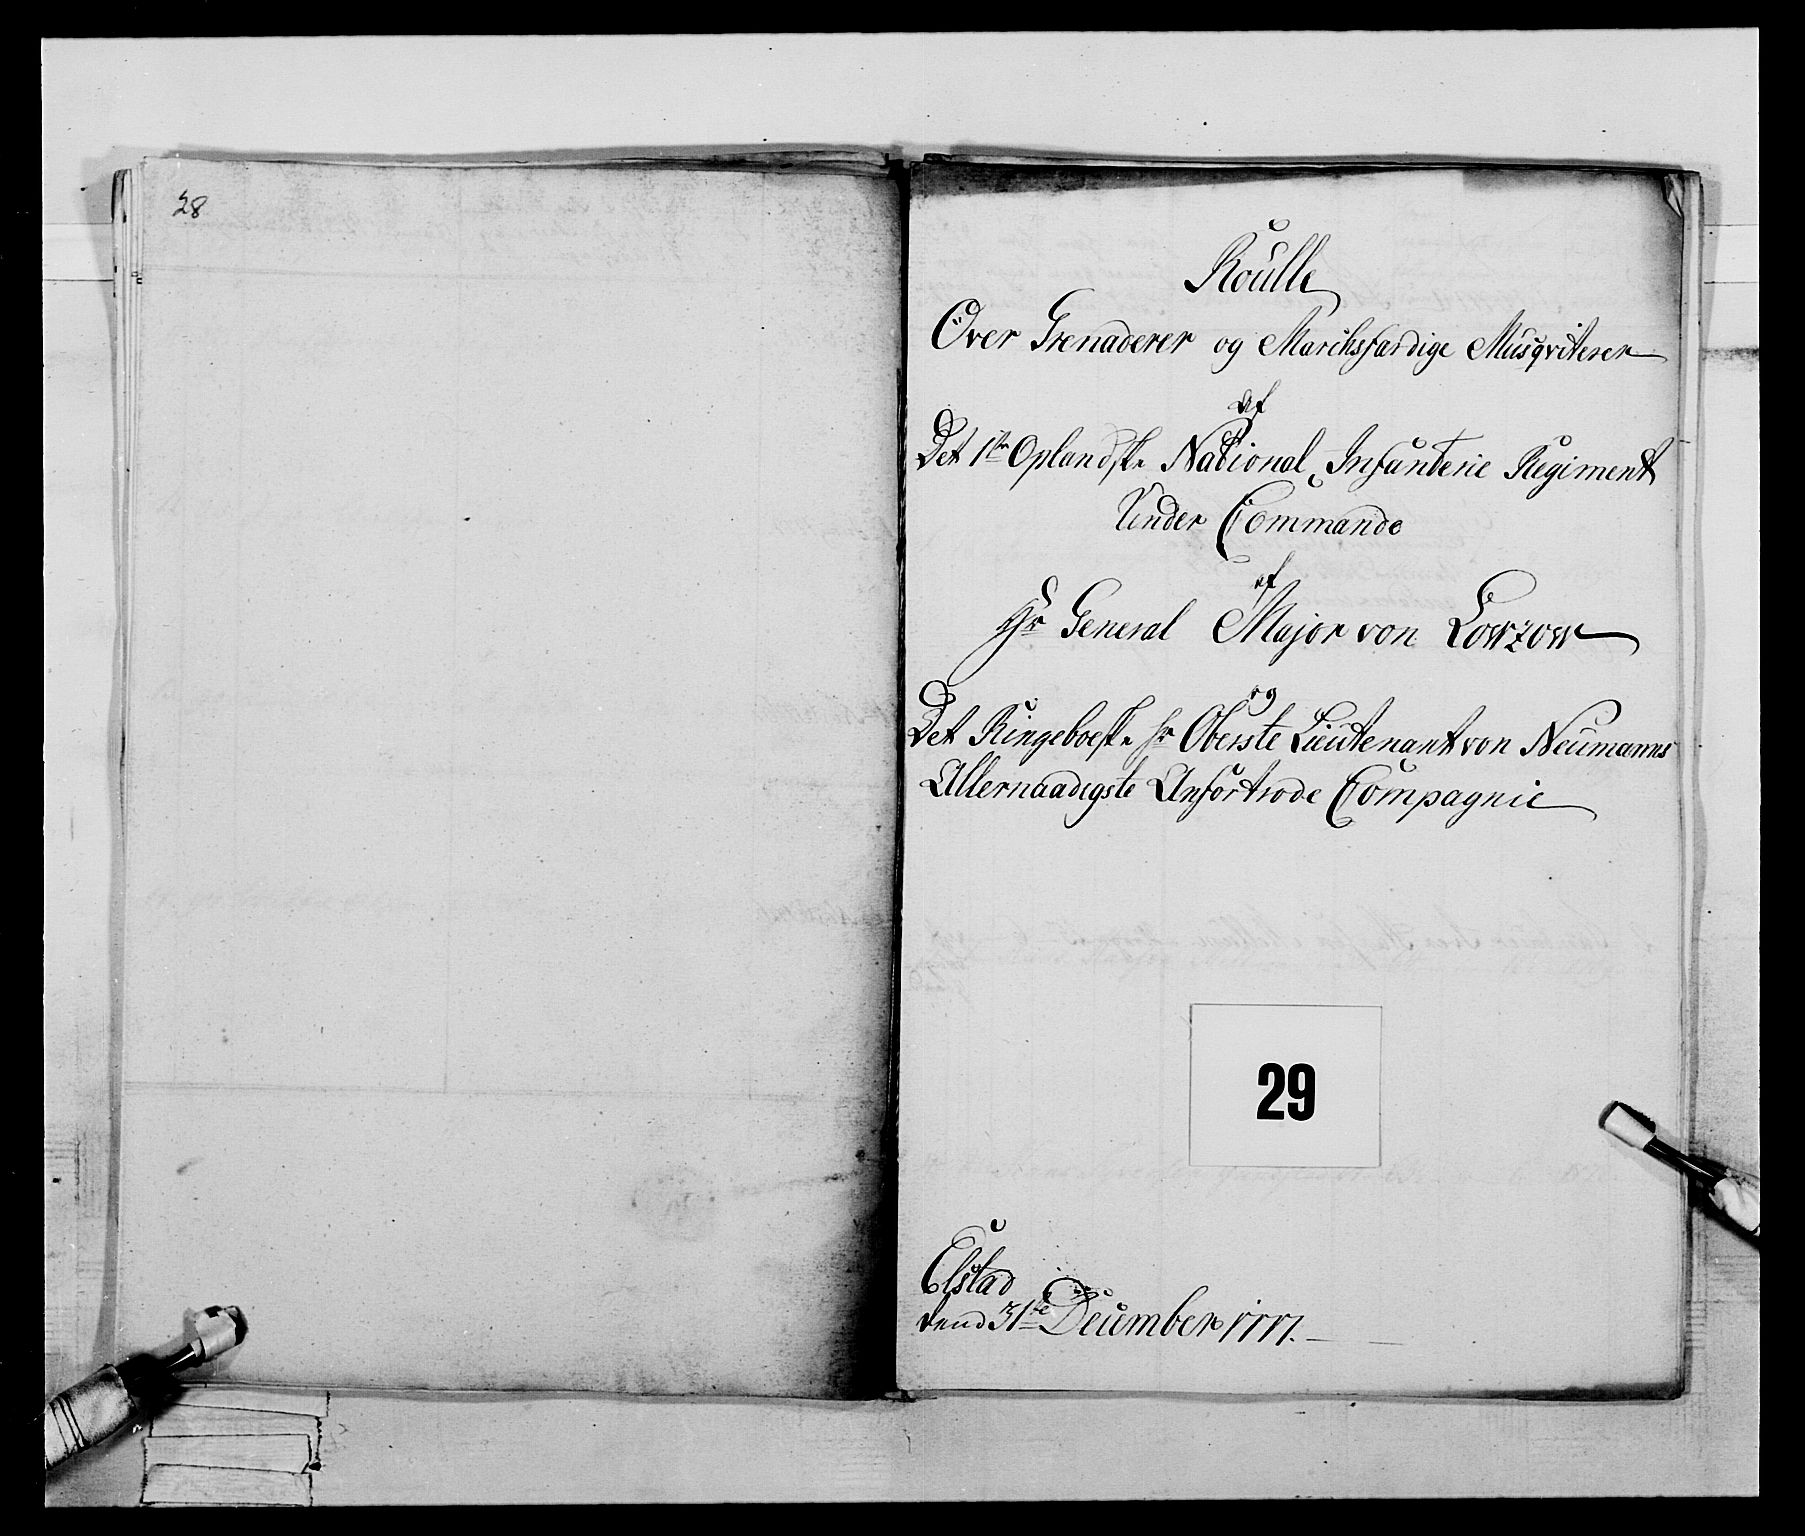 28
Roulle
Over Grenaderer og Marchsfærdige Musqviterer
af
Det 1ste Oplandske National Infanterie Regiment
Under Commando
af
Hr General Major von Lowzow
og
Det Ringeboeske Hr Oberste Lieutenant von Neumanns
Allernaadigste Anfortrode Compagnie
29
Elstad
dend 31te December 1777.